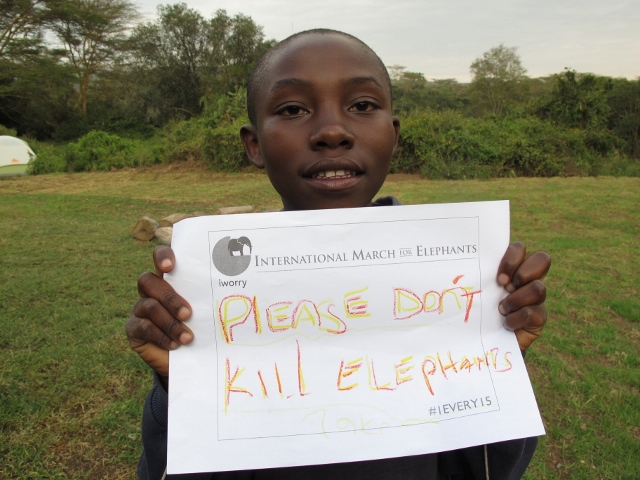 INTERNATIONAL MARCH FOR ELEPHANTS
iworry
PLEASE DON'T
KIll ELEPHANTS
#1EVERY15